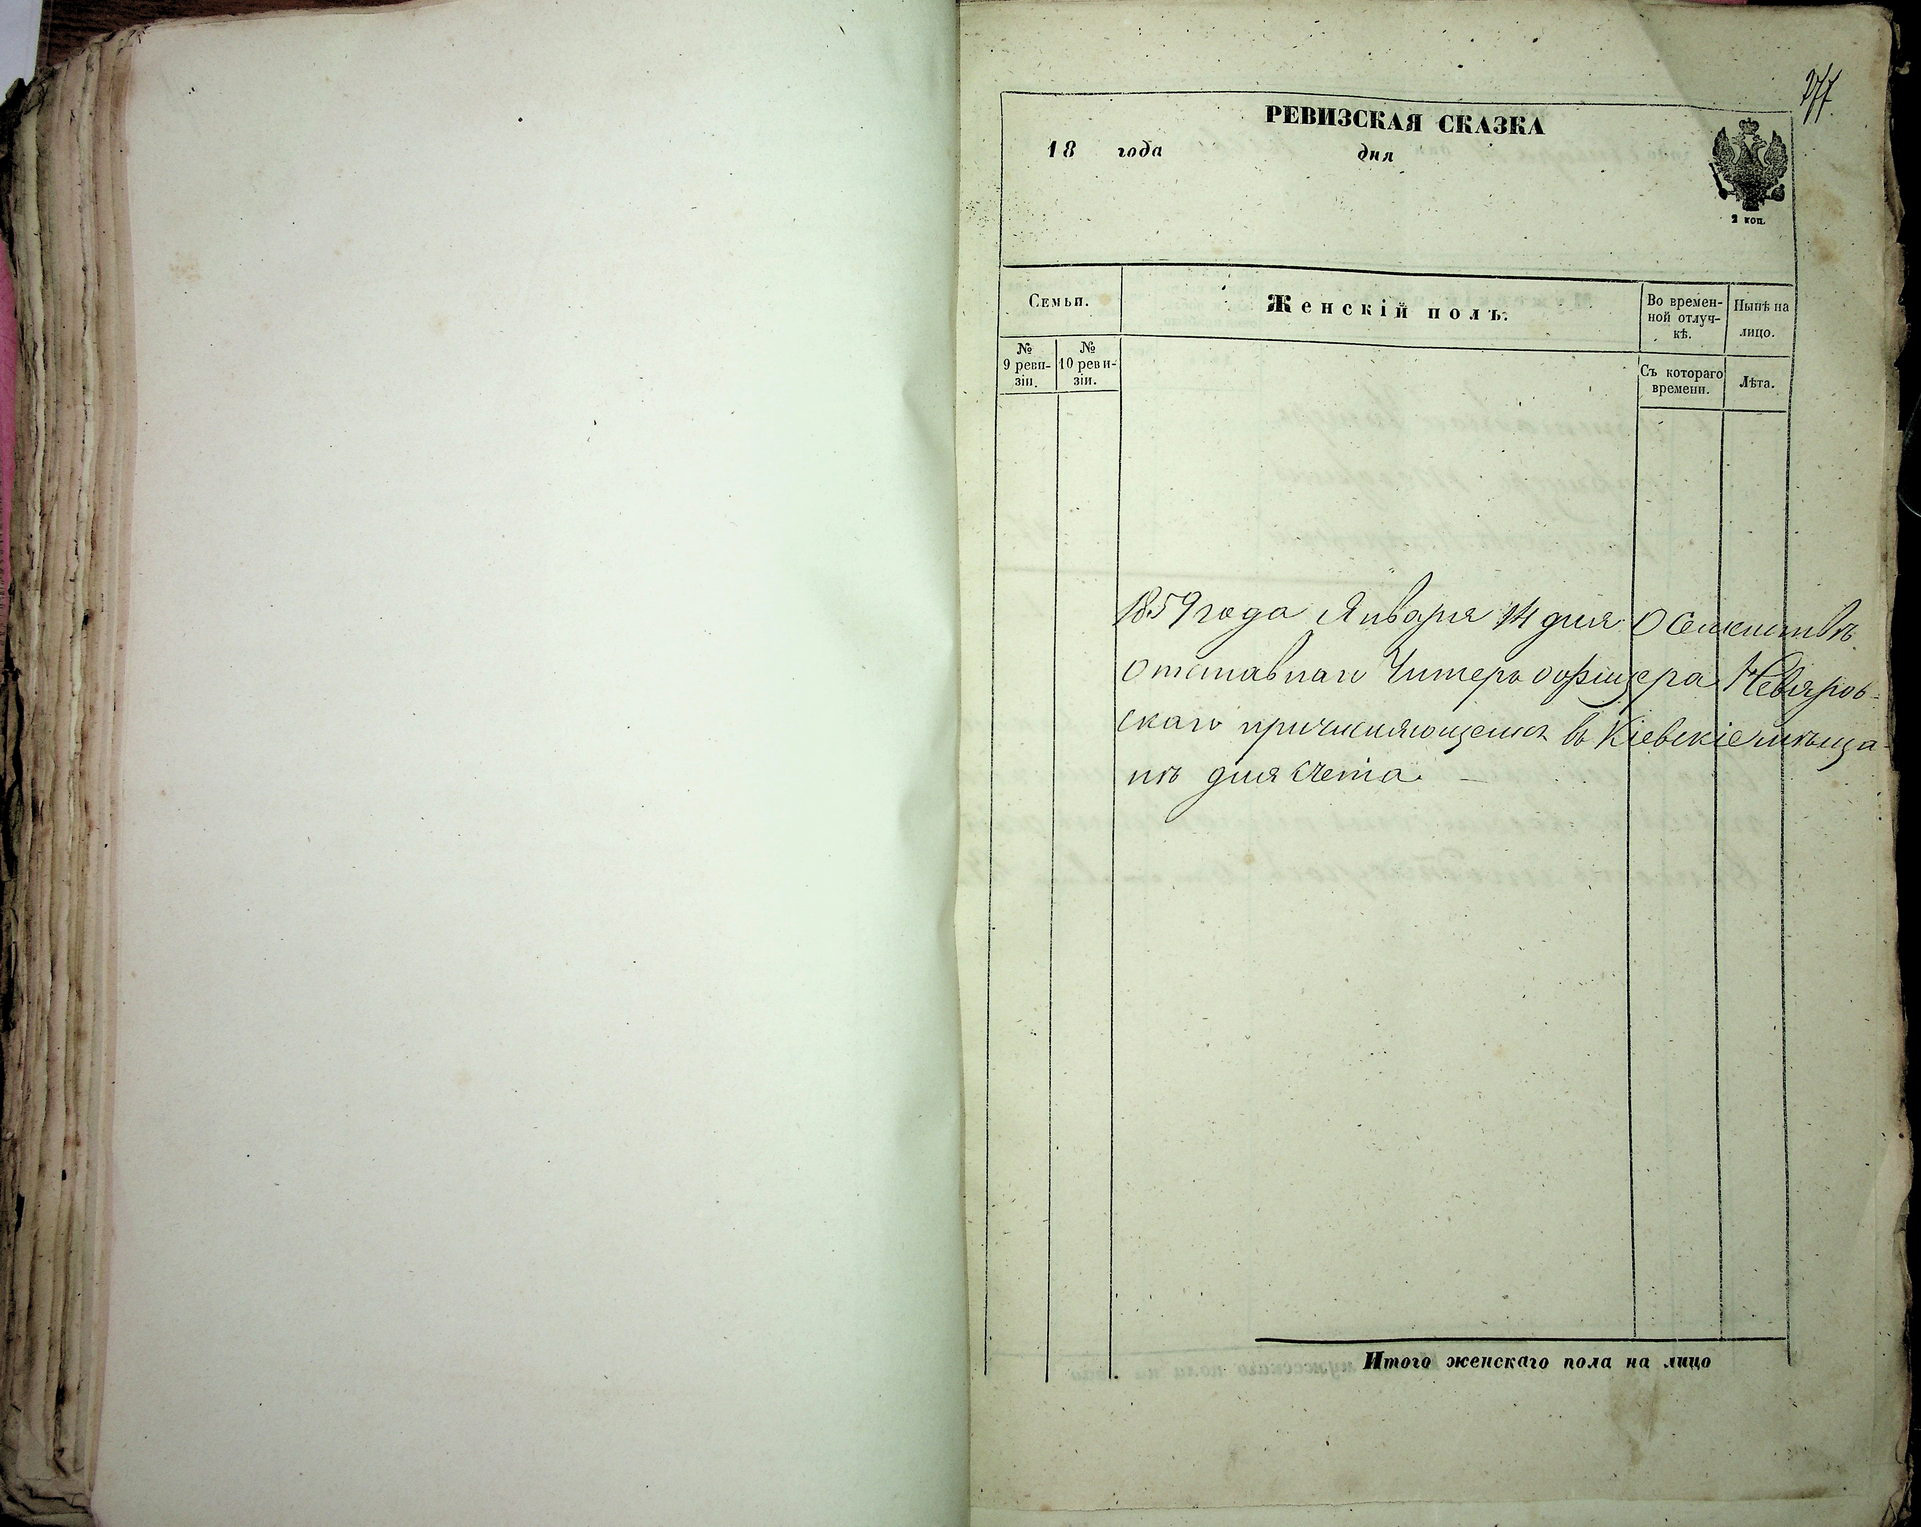 277
РЕВИЗСКАЯ СКАЗКА
18 года дня
2 коп.
Семьи.
Женскій полъ.
Во времен-
ной отлуч-
кѣ.
Нынѣ на
лицо.
№
9 реви-
зіи.
№
10 реви-
зіи.
Съ котораго
времени.
Лѣта.
1859 года Января 14 дня О Семействѣ
отставнаго Унтеръ офицера Невяров-
скаго причисляющемся въ Кіевскіе мѣща-
нѣ для счета. —
Итого женскаго пола на лицо